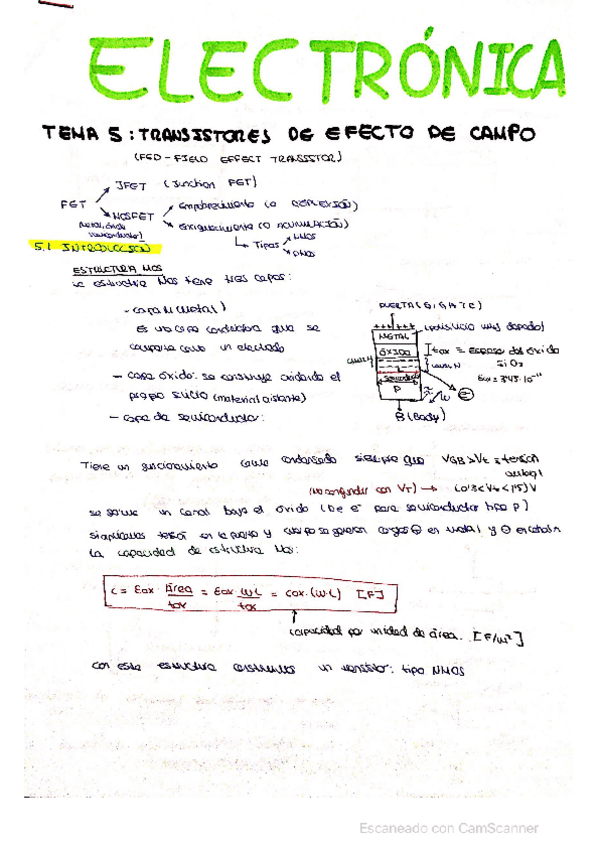 ELECTRÓNICA
TEMA 5: TRANSISTORES DE EFECTO DE CAMPO
(FED - FIELD EFFECT TRANSISTOR)
JFET (Junction FET)
FET
MOSFET
empobrecimiento (o DEPLEXIÓN)
enriquecimiento (o ACUMULACIÓN)
Tipos
NMOS
PMOS
5.1 INTRODUCCION
ESTRUCTURA MOS
La estructura MOS tiene tres capas:
- capa M (metal)
Es una capa conductora que se
comporta como un electrodo
- capa óxido: se construye oxidando el
propio silicio (material aislante)
- capa de semiconductor:
PUERTA (GIGATE)
++++ +++
METAL
OXIDO
P
B (Body)
(polisilicio muy dopado)
tox = espesor del óxido
SiO2
canal N
Tiene un funcionamiento como condensador siempre que VGB > Vt = tensión
(No confundir con VT) → (0'3<Vt<1'5)V
se forme un canal bajo el óxido (De e- para semiconductor tipo P)
si aplicamos tensión en la puerta y cuerpo se generan cargas ⊕ en metal y ⊖ en canal n
La capacidad de estructura MOS:
C = Eox · área/tox = Eox · W·L/tox = Cox · (W·L) [F]
capacidad por unidad de área. [F/m²]
con esta estructura construimos un transistor: tipo NMOS
Escaneado con CamScanner